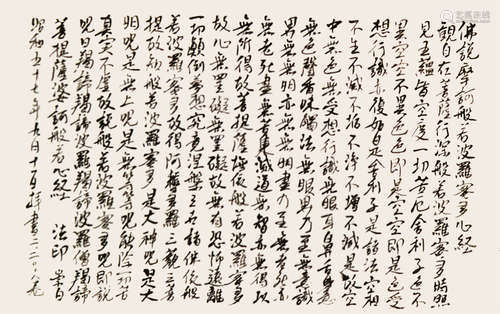 佛說摩訶般若波羅蜜多心經
觀自在菩薩行深般若波羅蜜多時照
見五蘊皆空度一切苦厄舍利子色不
異空空不異色色即是空空即是色受
想行識亦復如是舍利子是諸法空相
不生不滅不垢不淨不增不減是故空
中無色無受想行識無眼耳鼻舌身意
無色聲香味觸法無眼界乃至無意識
界無無明亦無無明盡乃至無老死亦
無老死盡無苦集滅道無智亦無得以
無所得故菩提薩埵依般若波羅蜜多
故心無罣礙無罣礙故無有恐怖遠離
一切顛倒夢想究竟涅槃三世諸佛依般
若波羅蜜多故得阿耨多羅三藐三菩
提故知般若波羅蜜多是大神呪是大
明呪是無上呪是無等等呪能除一切苦
真實不虛故說般若波羅蜜多呪即說
呪曰羯諦羯諦波羅羯諦波羅僧羯諦
菩提薩婆訶般若心經 法印
昭和五十七年 月十 日拝書